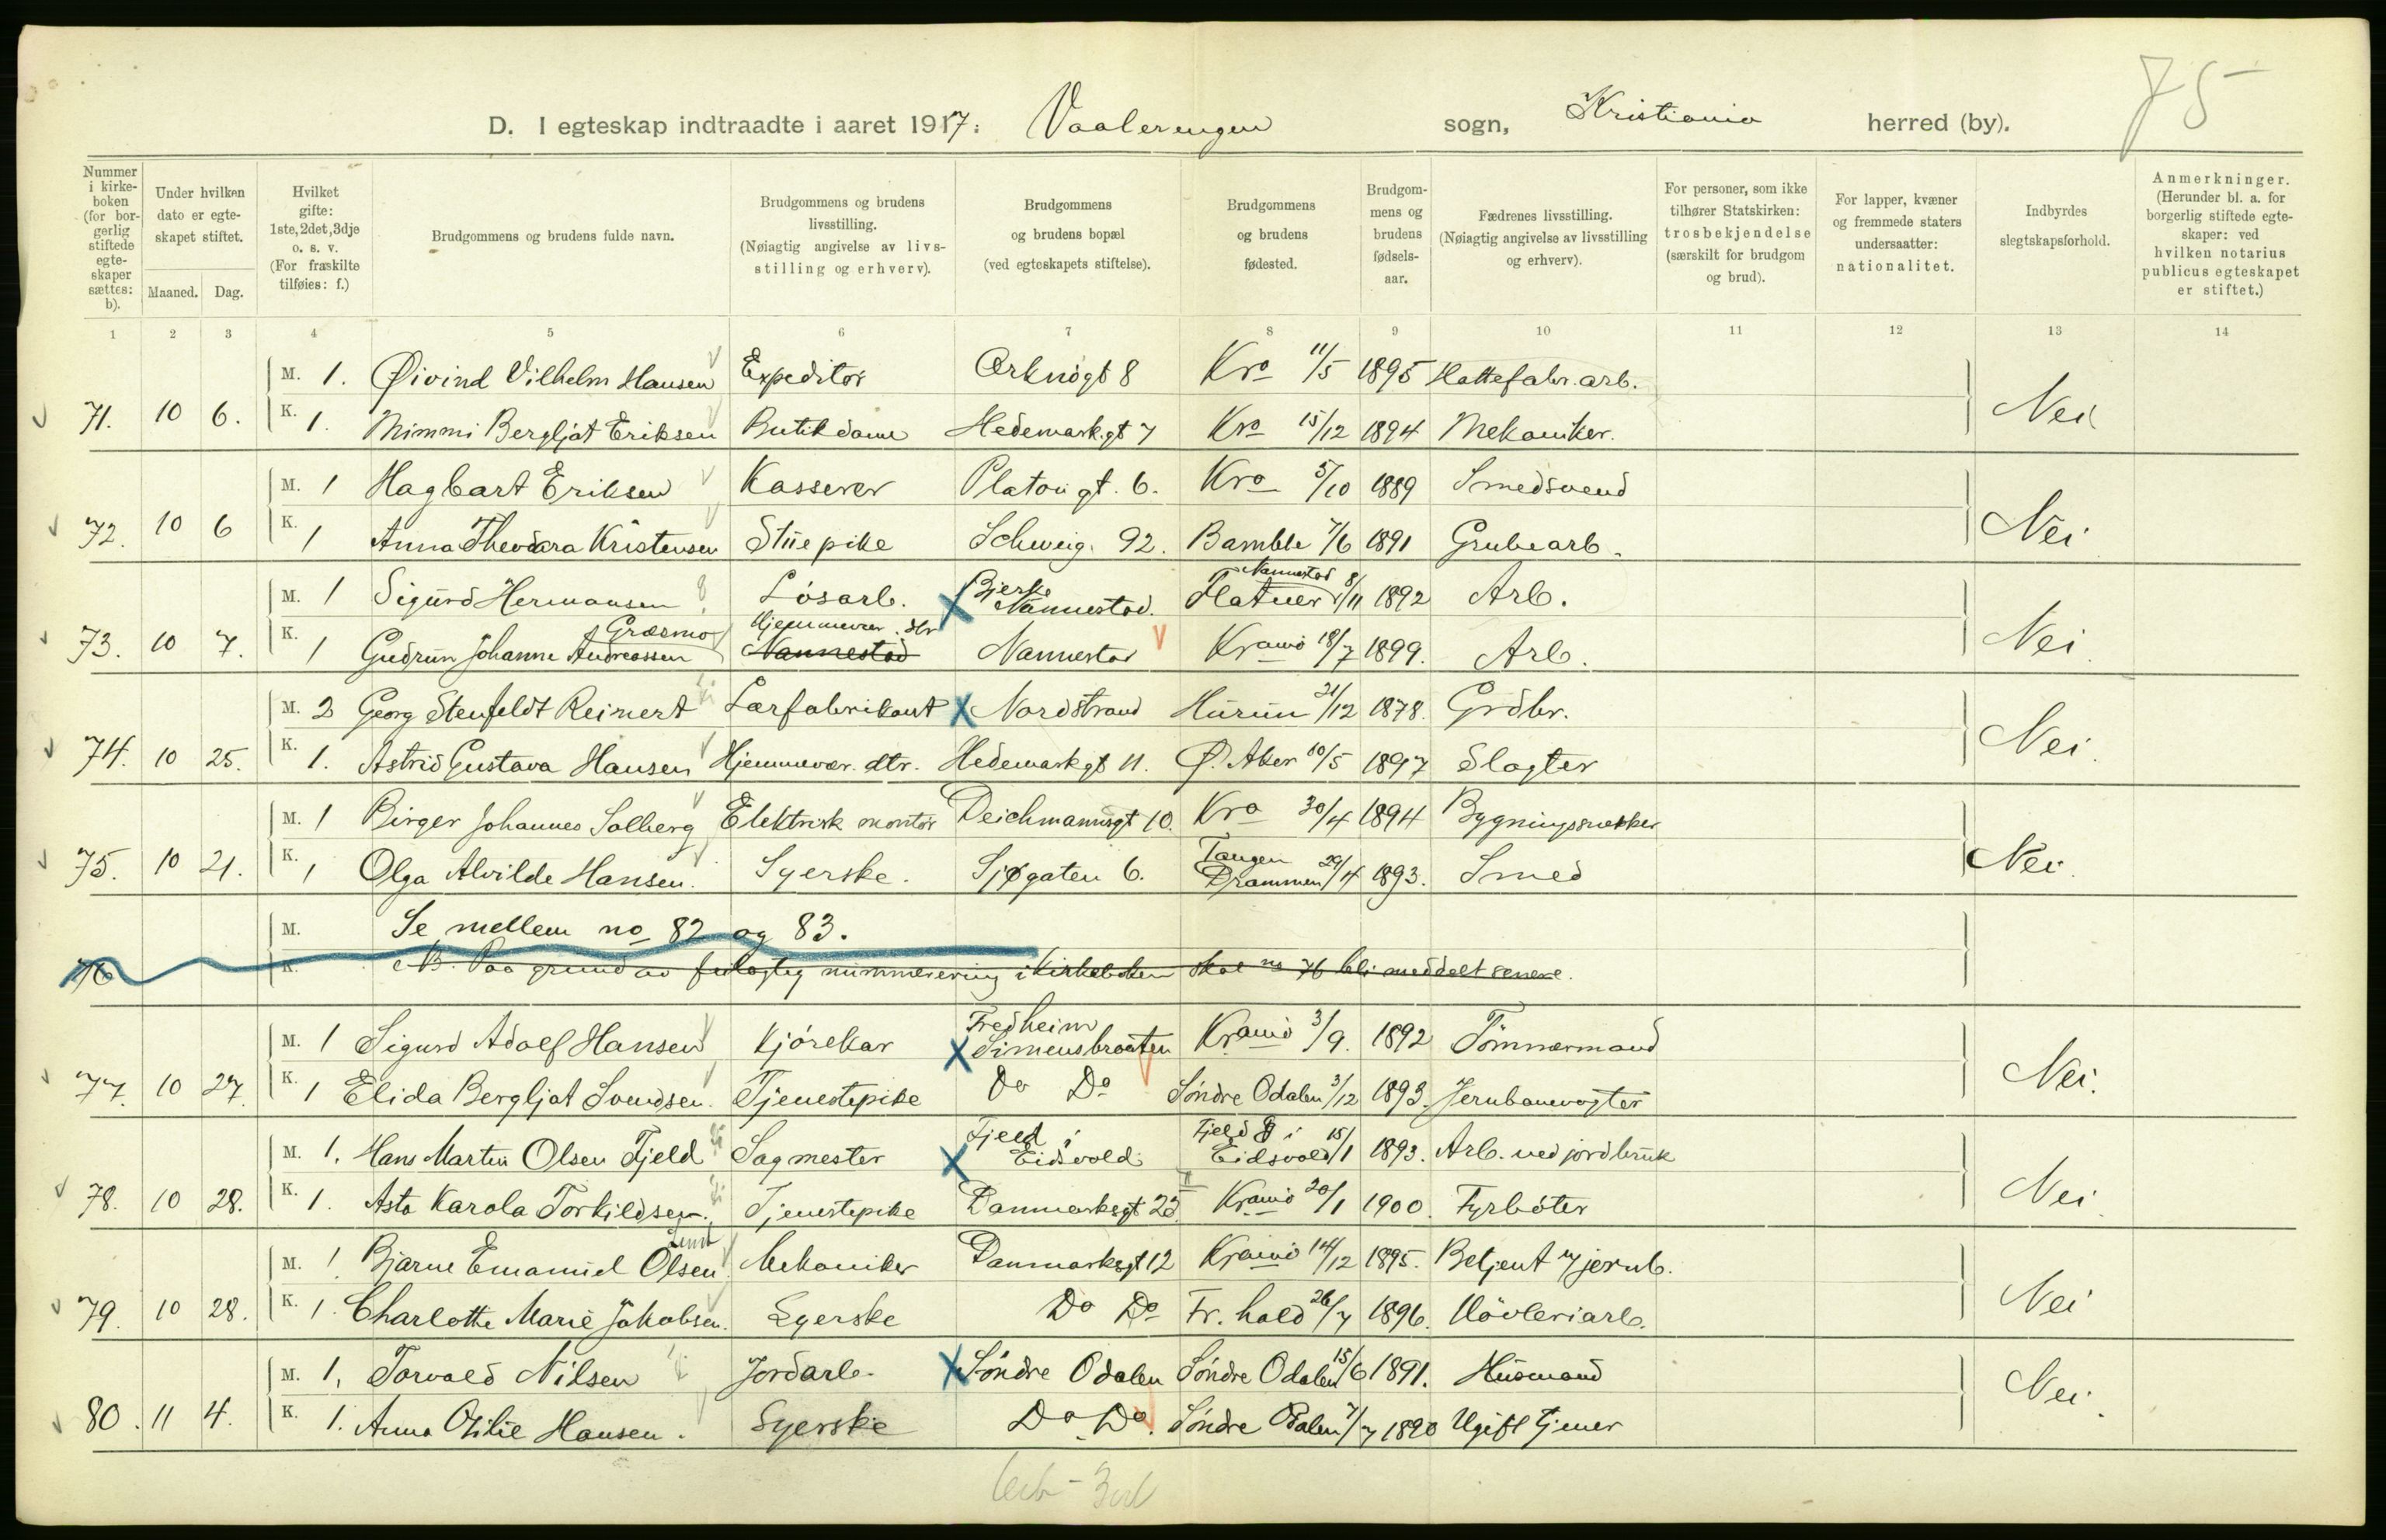 75
D. I egteskap indtraadte i aaret 1917: Vaalerengen sogn, Kristiania herred (by).
Nummer i kirke-boken (for bor-gerlig stiftede egte-skaper sættes: b).
Under hvilken dato er egte-skapet stiftet.
Maaned. Dag.
Hvilket gifte: 1ste, 2det, 3dje o. s. v. (For fraskilte tilføies: f.)
Brudgommens og brudens fulde navn.
Brudgommens og brudens livsstilling. (Nøiagtig angivelse av livs-stilling og erhverv).
Brudgommens og brudens bopæl (ved egteskapets stiftelse).
Brudgommens og brudens fødested.
Brudgom-mens og brudens fødsels-aar.
Fædrenes livsstilling. (Nøiagtig angivelse av livsstilling og erhverv).
For personer, som ikke tilhører Statskirken: trosbekjendelse (særskilt for brudgom og brud).
For lapper, kvæner og fremmede staters undersaatter: nationalitet.
Indbyrdes slegtskapsforhold.
Anmerkninger. (Herunder bl. a. for borgerlig stiftede egte-skaper: ved hvilken notarius publicus egteskapet er stiftet.)
1 2 3 4 5 6 7 8 9 10 11 12 13 14
M. 1. Øivind Vilhelm Hansen Expeditør Arknøgt 8 Kra 11/5 1895 Hattefabr. arb.
71. 10 6. Nei
K. 1. Mimmi Bergljot Eriksen Butikdame Hedemark.gt 7 Kra 15/12 1894 Mekaniker.
M. 1 Hagbart Eriksen Kasserer Platougt. 6. Kra 5/10 1889 Smedsvend
72. 10 6 Nei
K. 1 Anna Theodora Kristensen Stuepike Schweig. 92. Bamble 7/6 1891 Grubearb.
M. 1 Sigurd Hermansen Løsarb. Bjerke Nannestad. Nannestad Flatner 8/11 1892 Arb.
73. 10 7. Nei
K. 1 Gudrun Johanne Andreassen Græsmo Hjemmevær. dtr Nannestad Nannestad Kr.ania 18/7 1899. Arb.
M. 2 Georg Stenfeldt Reinert Lærfabrikant Nordstrand Hurum 21/12 1878. Grdbr.
74. 10 25. Nei.
K. 1. Astrid Gustava Hansen Hjemmevær. dtr. Hedemarkgt 11. Ø. Aker 10/5 1897 Slagter
M. 1 Birger Johannes Solberg Elektrisk montør Deichmannsgt 10. Kra 30/4 1894 Bygningssnekker
75. 10 21. Nei.
K. 1 Olga Alvilde Hansen. Syerske. Sjøgaten 6. Tangen Drammen 29/4 1893. Smed
M. Se mellem no 82 og 83.
76
K. NB. Paa grund av feilagtig nummerering i kirkeboken skal no 76 bli meddelt senere.
M. 1 Sigurd Adolf Hansen Kjørekar Fredheim Simensbraaten Kr.ania 3/9. 1892 Tømmermand
77. 10 27. Nei.
K. 1 Elida Bergljot Svendsen. Tjenestepike Do Do Søndre Odalen 3/12 1893. Jernbanevogter
M. 1. Hans Martin Olsen Fjeld Sagmester Fjeld i Eidsvold. Fjeld i Eidsvold 15/1 1893. Arb. ved jordbruk
78. 10 28. Nei.
K. 1. Asta Karola Torkildsen. Tjenestepike Danmarksgt 23 Kr.ania 20/1 1900. Fyrbøter
M. 1. Bjarne Emanuel Olsen Mekaniker Danmarksgt 12 Kr.ania 14/12 1895. Betjent v/ jernb.
79. 10 28. Nei
K. 1. Charlotte Marie Jakobsen. Syerske Do Do Fr. hald 26/7 1896. Høvleriarb.
M. 1. Torvald Nilsen Jordarb. Søndre Odalen Søndre Odalen 15/6 1891. Husmand
80. 11 4. Nei.
K. 1. Anna Otilie Hansen. Syerske Do Do. Søndre Odalen 7/7 1890 Ugift tjener